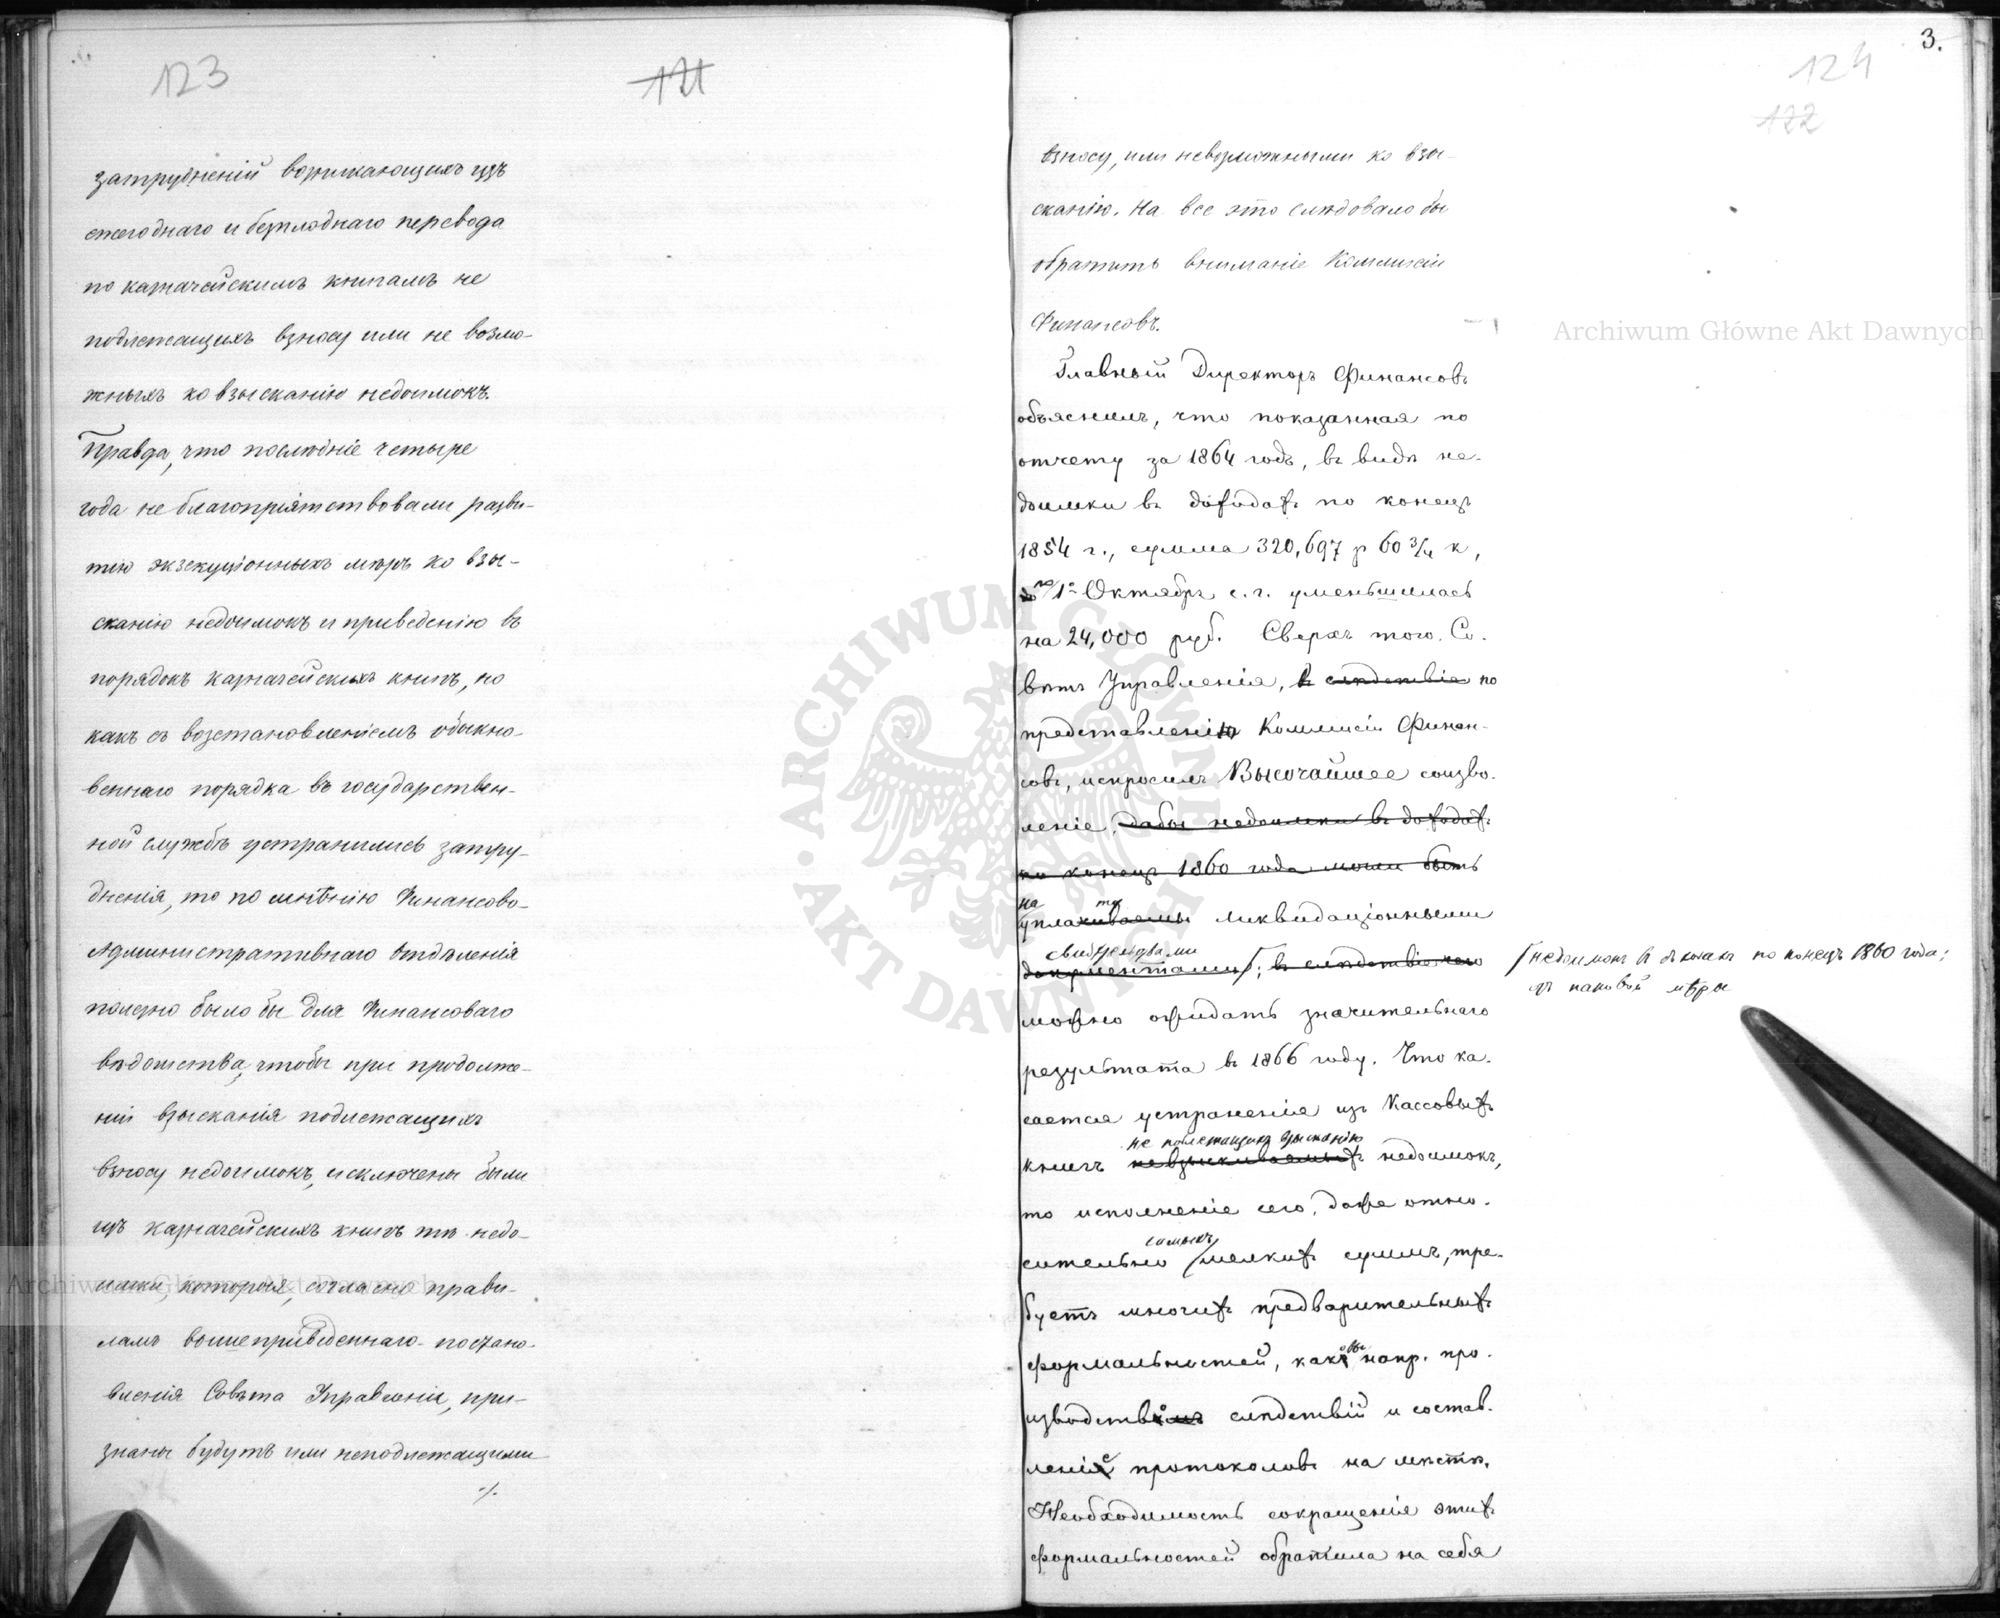 123
121
затрудненій возникающихъ изъ
ежегоднаго и безплоднаго перевода
по казначейскимъ книгамъ не
подлежащихъ взносу или не возмо-
жныхъ ко взысканію недоимокъ.
Правда, что послѣдніе четыре
года не благопріятствовали разви-
тію экзекуціонныхъ мѣръ ко взы-
сканію недоимокъ и приведенію въ
порядокъ казначейскихъ книгъ, но
какъ съ возстановленіемъ обыкно-
веннаго порядка въ государствен-
ной службѣ устранились затру-
дненія, то по мнѣнію Финансово-
Административнаго Отдѣленія
полезно было бы для Финансоваго
вѣдомства, чтобы при продолже-
ніи взысканія подлежащихъ
взносу недоимокъ, исключены были
изъ казначейскихъ книгъ тѣ недо-
имки, которыя, согласно прави-
ламъ вышеприведеннаго постано-
вленія Совѣта Управленія, при-
знаны будутъ или неподлежащими
./.
3.
124
122
взносу, или невозможными ко взы-
сканію. На все это слѣдовало бы
обратить вниманіе Коммисіи
Финансовъ.
Главный Директоръ Финансовъ
объяснилъ, что показанная по
отчету за 1864 годъ, въ видѣ не-
доимки въ доходахъ по конецъ
1854 г., сумма 320,697 р 60 3/4 к,
по 1е Октября с. г. уменьшилась
на 24,000 руб. Сверхъ того, Со-
вѣтъ Управленія, въ слѣдствіе по
представленію Коммисіи Финан-
совъ, испросилъ Высочайшее соизво-
леніе, дабы недоимки въ доходахъ
по конецъ 1860 года могли быть
на ту
уплачиваемы ликвидаціонными
свидѣтельствами
документами; въ слѣдствіе чего
недоимокъ въ доходахъ по конецъ 1860 года;
изъ каковой мѣры
можно ожидать значительнаго
результата въ 1866 году. Что ка-
сается устраненія изъ Кассовыхъ
не подлежащихъ взысканію
книгъ невзыскиваемыхъ недоимокъ,
то исполненіе сего, даже отно-
самыхъ
сительно мелкихъ суммъ, тре-
буетъ многихъ предварительныхъ
формальностей, каковы напр. про-
изводство слѣдствій и состав-
леніе протоколовъ на мѣстѣ.
Необходимость сокращенія этихъ
формальностей обратила на себя
Archiwum Główne Akt Dawnych
Archiwum Główne Akt Dawnych
ARCHIWUM GŁÓWNE • AKT DAWNYCH •